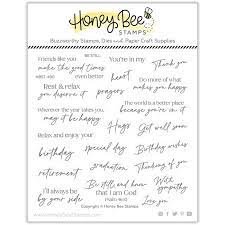 Honey Bee
STAMPS
Buzzworthy Stamps, Dies and Paper Craft Supplies
Friends like you
make the good times
even better
BE STILL
HBST-490
You're in my
heart
Thank you
Rest & relax
you deserve it
prayers
Do more of what
makes you happy
Wherever the year takes you,
may it be happy
The world is a better place
because you're in it
Hugs
Get well soon
Relax and enjoy your
birthday
special day
Birthday wishes
retirement
graduation
Thinking of you
I'll always be
by your side
Be still and know
that I am God
Psalm 46:10
With
sympathy
Love you
www.HoneyBeeStamps.com
Copyright © Honey Bee Stamps